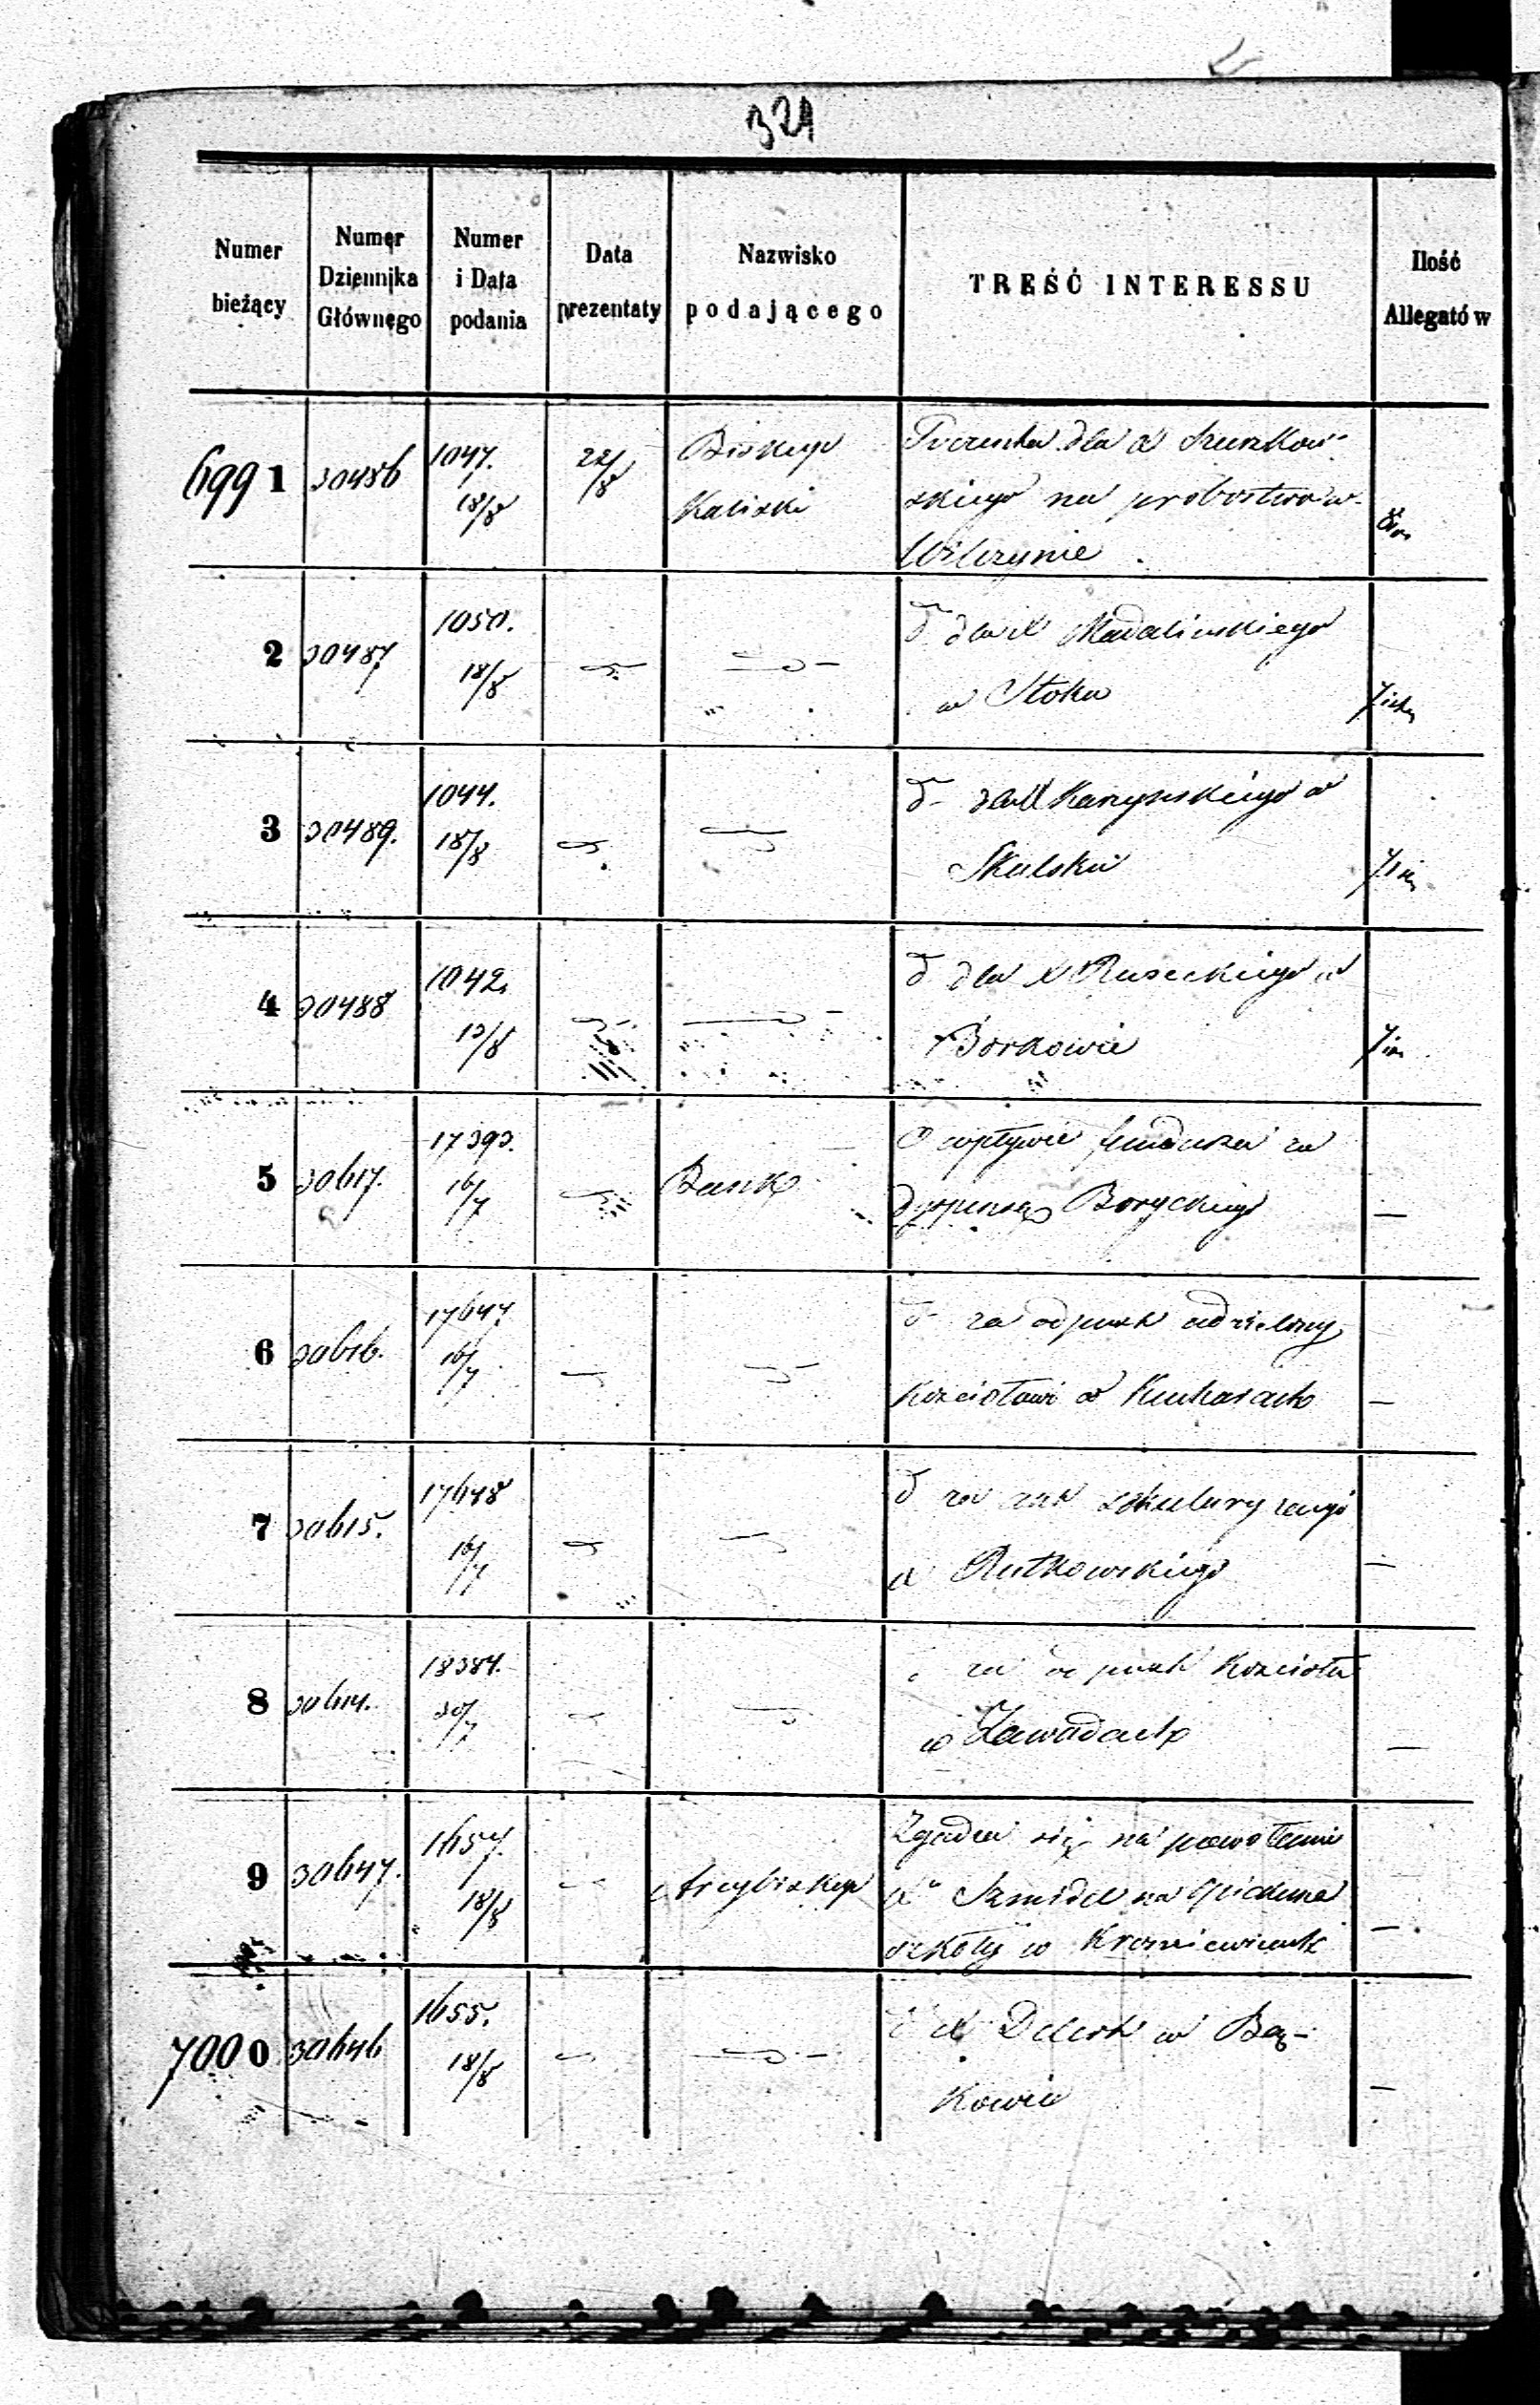 321
Numer bieżący
Numer Dziennika Głównego
Numer i Data podania
Data prezentaty
Nazwisko podającego
TREŚĆ INTERESSU
Ilość Allegatów
6991 30486 1047. 18/8 22/8 Biskup Kaliski dla X
skiego na probostwo w
Wilczynie
2 30487 1050. 18/8 dla X Madalińskiego
w Stoku
3 30489. 1044. 18/8
Skulsku
4 30488 1042. 13/8 dla X Ruseckiego w
Borkowie
5 30617. 17393. 16/7 Bank O wpływie fundusza za
dyspensę Boryckiego
6 30616. 17647. 16/7 za odpust udzielony
Kościołowi w Kucharach
7 30615. 17648 16/7 za akt
X Rutkowskiego
8 30614. 18384. 30/7 za odpust Kościoła
w Zawadach
9 30647. 1657. 18/8 Arcybiskup Zgadza się na powołanie
X Szmidel na Opiekuna
szkoły w Krośniewicach
7000 30646 1655. 18/8 X w Bą-
kowie